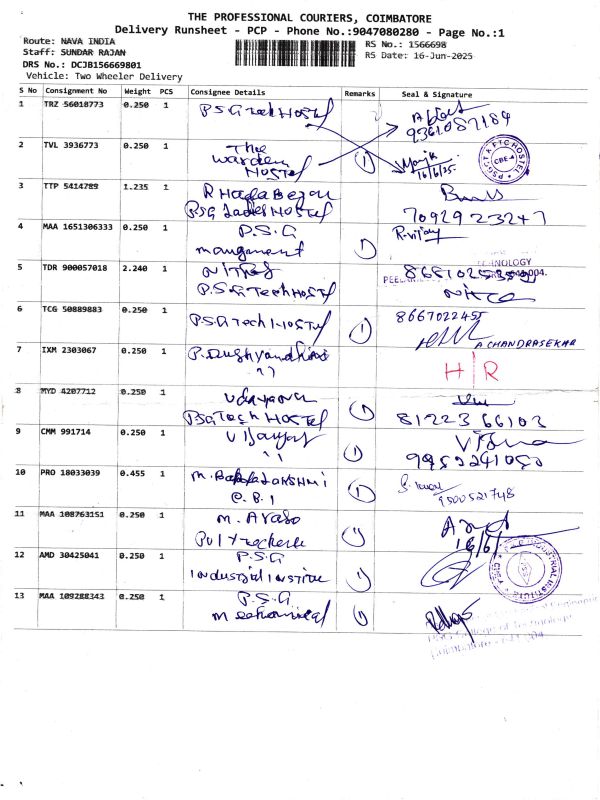 THE PROFESSIONAL COURIERS, COIMBATORE
Delivery Runsheet - PCP - Phone No.:9047080280 - Page No.:1
Route: NAVA INDIA
Staff: SUNDAR RAJAN
RS No.: 1566698
RS Date: 16-Jun-2025
DRS No.: DCJB156669801
Vehicle: Two Wheeler Delivery
S No Consignment No Weight PCS Consignee Details Remarks Seal & Signature
1 TRZ 56018773 0.250 1 PSG Tech HOSTEL
9361087184
2 TVL 3936773 0.250 1 The
Warden
HOSTEL 1
16/6/25
PSGCT & PTC HOSTEL CBE-4
3 TTP 5414789 1.235 1
PSG Ladies HOSTEL
7092923247
4 MAA 1651306333 0.250 1 P.S.G
mangment 1 R-vijay
5 TDR 900057018 2.240 1
P.S.G Tech HOSTEL
TECHNOLOGY
PEELAMEDU
6 TCG 50889883 0.250 1 PSG Tech HOSTEL 1 8667022455
A.CHANDRASEKAR
7 IXM 2303067 0.250 1 P. Dushyandhini
"
H R
8 MYD 4207712 0.250 1 Udayavan
PSG Tech HOSTEL 1
81223 66102
9 CMM 991714 0.250 1 Vijayaj
" 1
10 PRO 18033039 0.455 1 M.
C.B.I 1
9500521748
11 MAA 108763151 0.250 1 M. Araso
Polytechnic 1
16/6/
12 AMD 30425041 0.250 1 P.S.G
Industrial Institue 1
PSG INDUSTRIAL INSTITUTE
13 MAA 109288343 0.250 1 P.S.G
Mechanical 1
PSG College of Technology
Coimbatore - 641 004